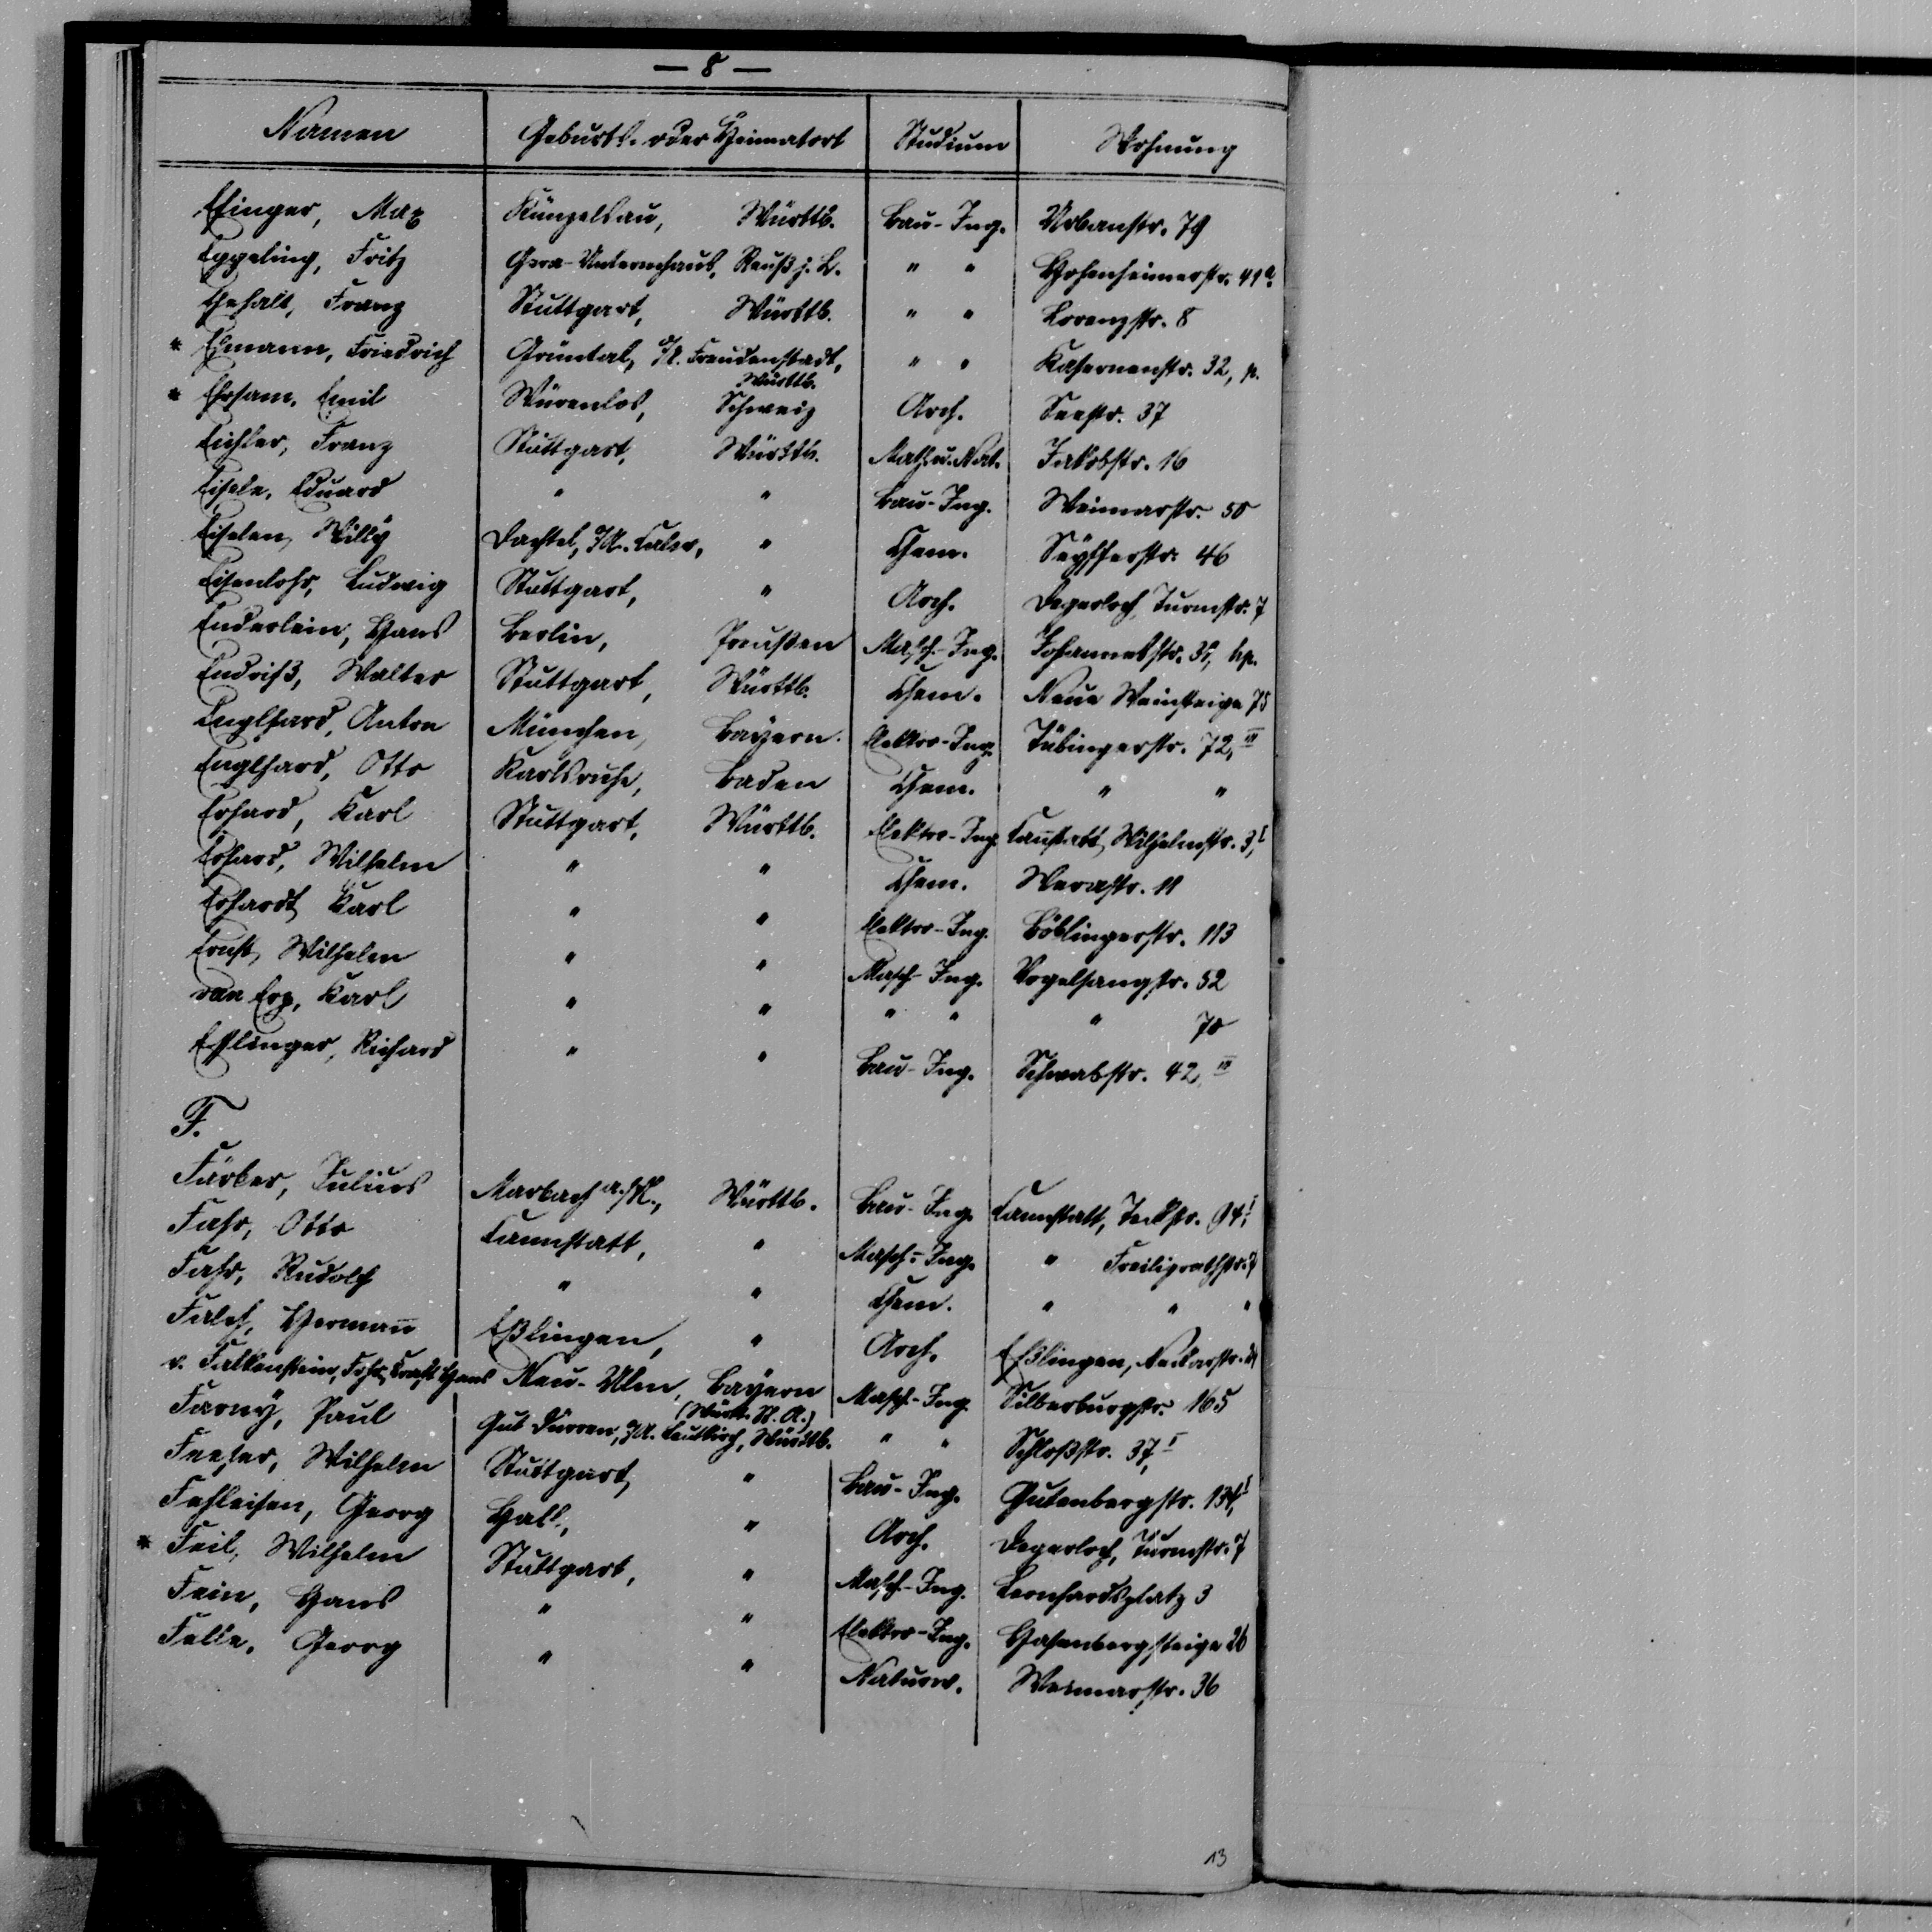 — 8 —
Namen Geburts- oder Heimatort Studium Wohnung
Efinger, Max Künzelsau, Württb. Bau-Ing. Urbanstr. 79
Eggeling, Fritz Gera-Untermhaus, Reuß j. L. " " Hohenheimerstr. 41a
Ehehalt, Franz Stuttgart, Württb. " " Lorenzstr. 8
* Ehmann, Friedrich Grüntal, O/A. Freudenstadt, Württb. " " Kasernenstr. 32, p.
* Ehrsam, Emil Würenlos, Schweiz Arch. Seestr. 37
Eichler, Franz Stuttgart, Württb. Math. u. Nat. Jakobstr. 16
Eisele, Eduard " " Bau-Ing. Weimarstr. 50
Eiselen, Willy Dachtel, O/A. Calw, " Chem. Seyfferstr. 46
Eisenlohr, Ludwig Stuttgart, " Arch. Degerloch, Turmstr. 7
Enderlein, Hans Berlin, Preußen Masch-Ing. Johannesstr. 35, hp.
Endriß, Walter Stuttgart, Württb. Chem. Neue Weinsteige 75
Englhard, Anton München, Bayern. Elektro-Ing. Tübingerstr. 72, III
Englhard, Otto Karlsruhe, Baden Chem. " "
Erhard, Karl Stuttgart, Württb. Elektro-Ing. Cannstatt, Wilhelmstr. 3, I
Erhard, Wilhelm " " Chem. Werastr. 11
Erhardt, Karl " " Elektro-Ing. Böblingerstr. 113
Ernst, Wilhelm " " Masch-Ing. Vogelsangstr. 52
van Erp, Karl " " " " " 70
Eßlinger, Richard " " Bau-Ing. Schwabstr. 42, III
F.
Färber, Julius Marbach a./N., Württb. Bau-Ing. Cannstatt, Teckstr. 94, I
Fahr, Otto Cannstatt, " Masch-Ing. " Freiligrathstr.
Fahr, Rudolf " " Chem. " " "
Falch, Hermann Eßlingen, " Arch. Eßlingen, Neckarstr.
v. Falkenstein, Frhr, Hans Neu-Ulm, Bayern (Württ. St. A.) Masch-Ing. Silberburgstr. 165
Farny, Paul Gut Dürren, O/A. Leutkirch, Württb. " " Schloßstr. 37, I
Feeser, Wilhelm Stuttgart, " Bau-Ing. Gutenbergstr. 134, I
Fehleisen, Georg Hall, " Arch. Degerloch, Turmstr. 7
* Feil, Wilhelm Stuttgart, " Masch-Ing. Leonhardsplatz 3
Fein, Hans " " Elektro-Ing. Hasenbergsteige 26
Felle, Georg " " Naturw. Weimarstr. 36
13